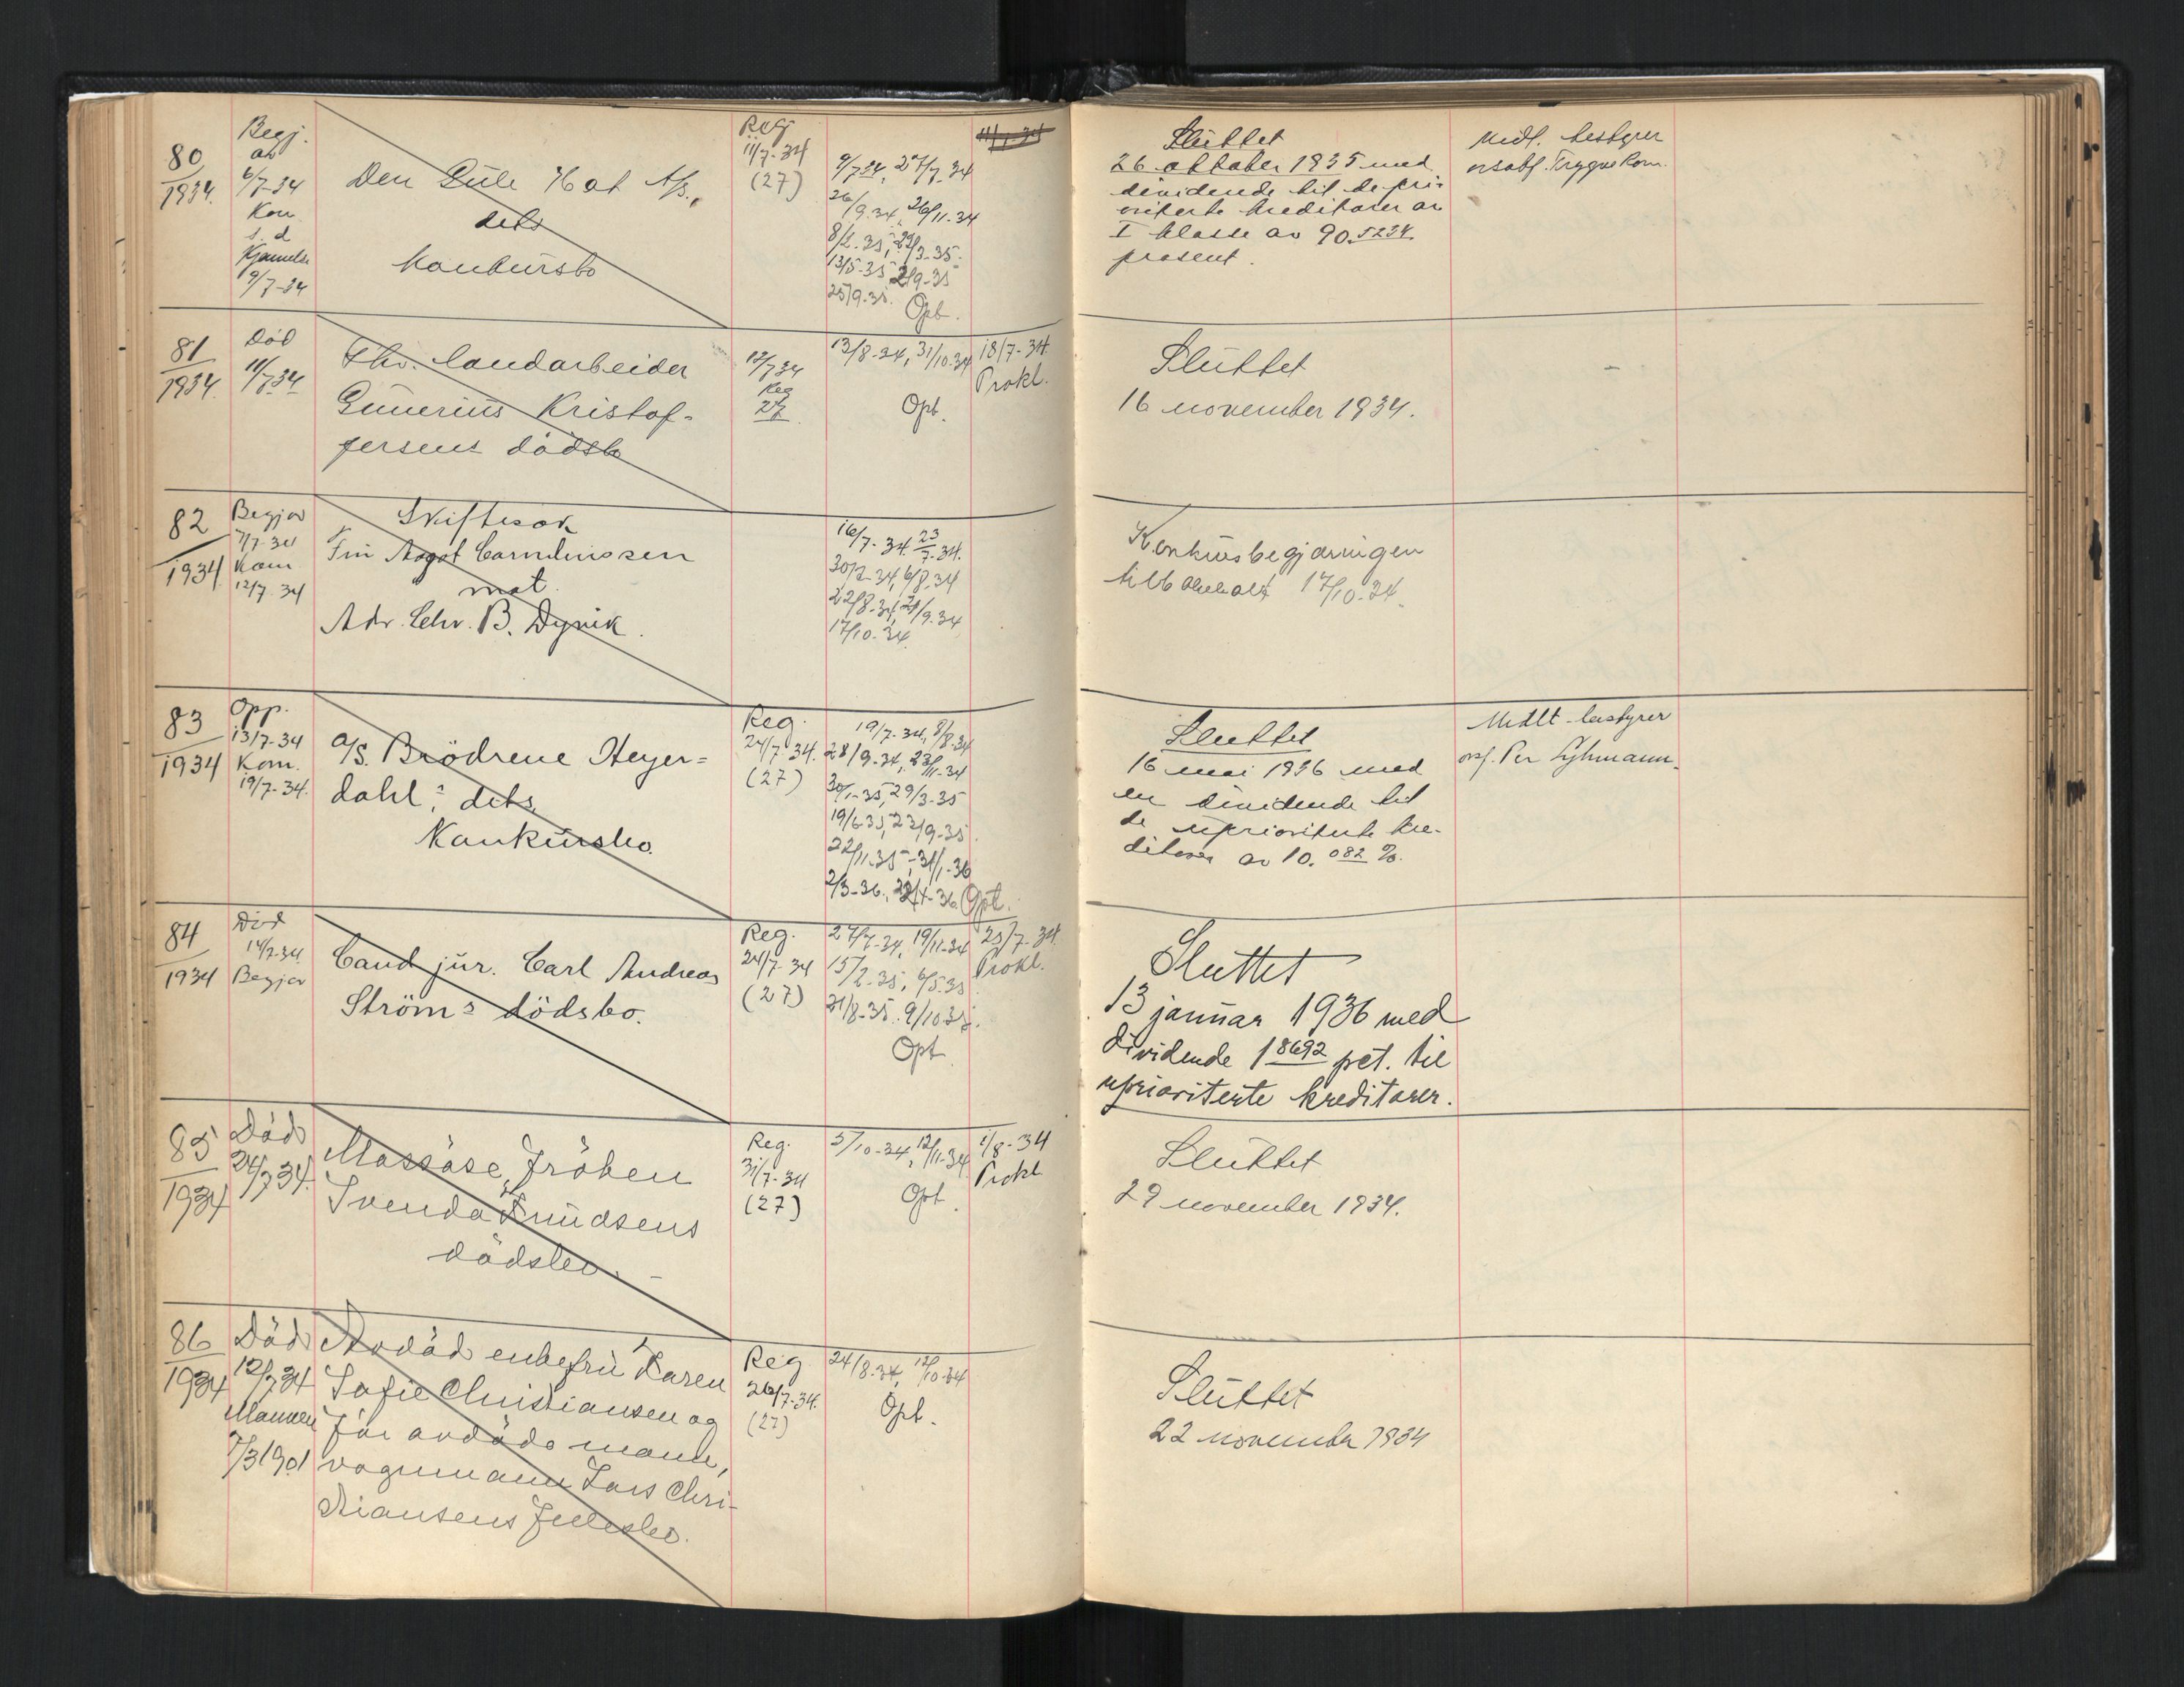 80
1934.
Begj.
av
6/7-34
Kon.
s. d
Kjennelse
9/7-34
Den Gule Hat A/s.,
dets
konkursbo
Reg
11/7-34
(27)
9/7 34, 27/7-34
26/9-34, 26/11-34
8/2-35, 29/3-35.
13/5-35 2/9-35
25/9-35.
Opb.
Sluttet
26 oktober 1935 med
dividende til de pri-
oriterte kreditorer av
I klasse av 90.5234
prosent.
Midl. bestyrer
orsakf. Trygve Rom.
81
1934.
Död
11/7 34
Fhv. landarbeider
Gunerius Kristof-
fersens dödsbo
12/7 34
Reg
27
13/8-34, 31/10-34
Opb.
18/7-34.
Prokl.
Sluttet
16 november 1934.
82
1934
Begjær
7/7-34
Kom
12/7-34
Skiftesak
Fru Aagot
mot
Adv. Chr. B. Dynik.
16/7-34. 23/7-34.
30/7-34, 6/8-34
22/8-34, 21/9-34
17/10-34.
Konkursbegjæringen
17/10-34.
83
1934
Opp.
13/7-34
Kom.
19/7-34.
A/S. Brödrene Heyer=
dahl, dets
Konkursbo.
Reg.
24/7-34.
(27)
19/7-34, 8/8-34
28/9-34, 23/11-34
30/1-35, 29/3-35
19/6-35, 23/9-35.
22/11-35, 31/1-36
2/3-36, 22/4-36
Opb.
Sluttet
16 mai 1936 med
en dividende til
de uprioriterte kre-
ditorer av 10.082 %.
Midlt. bestyrer
orsf. Per Lyhmann.
84
1934
Död
14/7-34.
Begjær
Cand jur. Carl Andreas
Ströms dödsbo.
Reg.
24/7-34
(27)
27/7-34, 19/11-34
15/2-35, 6/5-35
21/8-35. 9/10 35.
Opb
25/7-34.
Prokl.
Sluttet
13 januar 1936 med
dividende 1 8692 pct. til
uprioriterte kreditorer.
85
1934
Död
24/7 34.
Massöse, fröken
Svenda Knudsens
dödsbo.
Reg.
31/7-34
(27)
5/10-34, 12/11-34
Opb.
1/8-34
Prokl
Sluttet
29 november 1934.
86
1934
Död
12/7 34
Mannen
7/3 1901
Avdöd enkefru Karen
Sofie Christiansen og
för avdöde mann,
vognmann Lars Chri-
stiansens fellesbo.
Reg
26/7-34.
(27)
24/8-34, 12/10-34
Opb.
Sluttet
22 november 1934